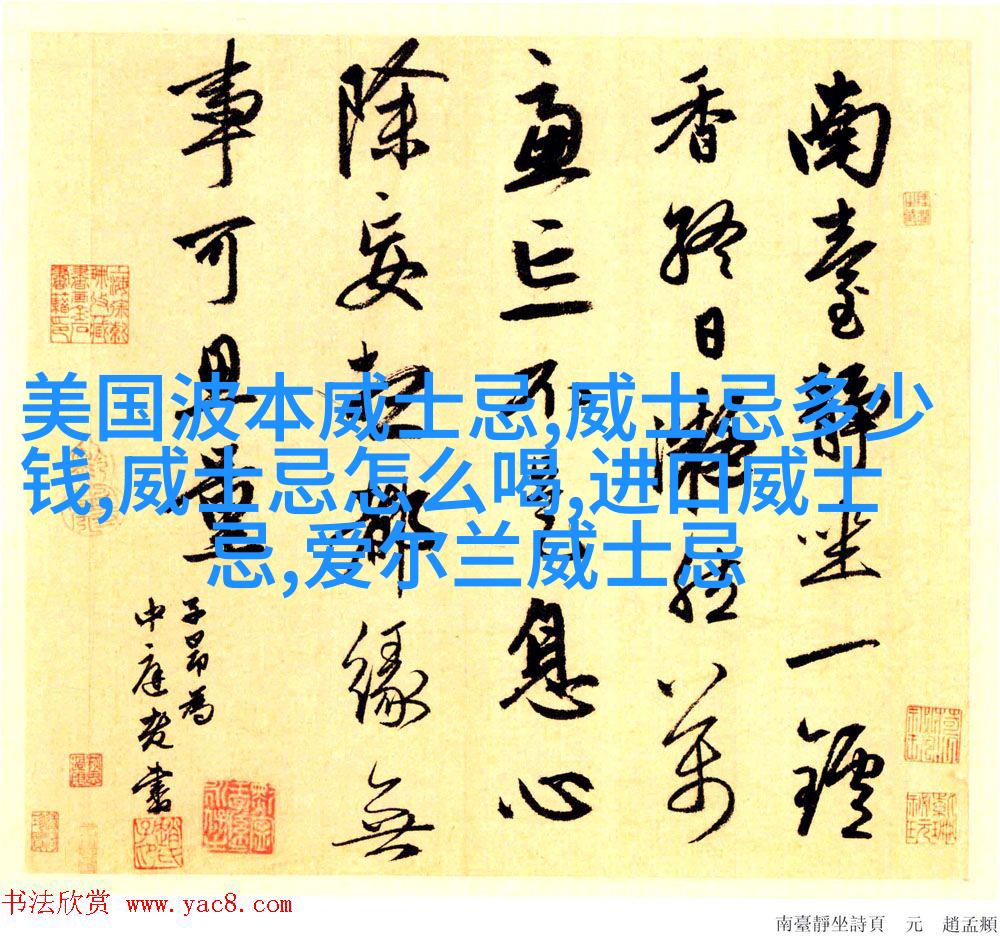 美国波本威士忌,威士忌多少
钱,威士忌怎么喝,进口威士
忌,爱尔兰威士忌
南臺靜坐一鑪
香終日凝然萬
慮忘不是息心
除妄想都緣無
事可思量
子昂為
中庭老書
书法欣赏 www.yac8.com
南臺靜坐詩頁 元 趙孟頫